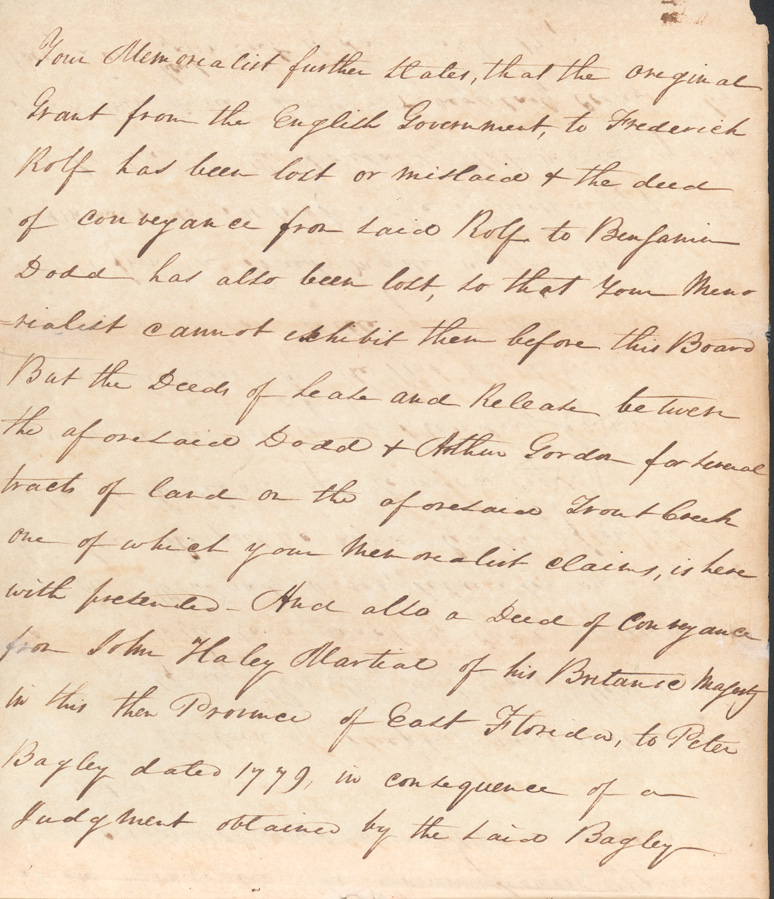 Your Memorialist further states, that the original
Grant from the English Government, to Frederick
Rolf has been lost or mislaid & the deed
of conveyance from said Rolf to Benjamin
Dodd has also been lost, so that Your Memo
=rialist cannot exhibit them before this Board
But the Deeds of Lease and Release between
the aforesaid Dodd & Arthur Gordon for several
tracts of land on the aforesaid Trout Creek
one of which your Memorialist claims, is here
with presented - And also a Deed of Conveyance
from John Haley Martial of his Britanic Majesty
in this then Province of East Florida, to Peter
Bagley dated 1779, in consequence of a
Judgment obtained by the said Bagley